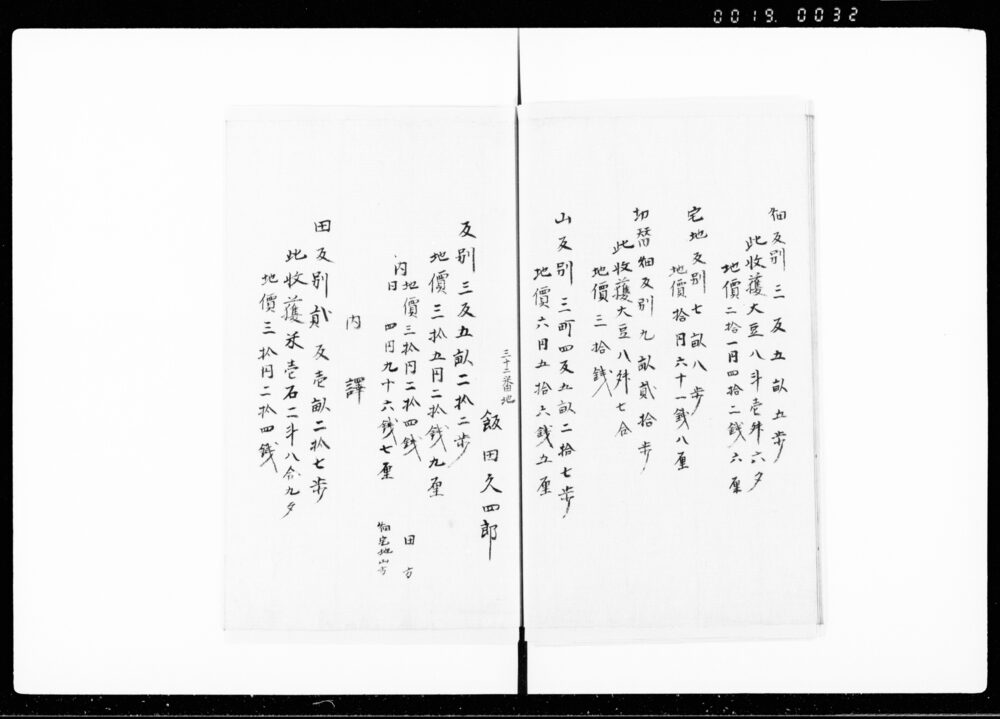 0019. 0032
畑反別三反五畝五歩
此收獲大豆八斗壱舛六夕
地價二拾一円四拾二銭六厘
宅地反別七畝八歩
地價拾円六十一銭八厘
切替畑反別九畝貳拾歩
此收獲大豆八舛七合
地價三拾銭
山反別三町四反五畝二拾七歩
地價六円五拾六銭五厘
三十二番地
飯田久四郎
反別三反五畝二拾二歩
地價三拾五円二拾銭九厘
内地價三拾円二拾四銭 田方
同 四円九十六銭七厘 畑宅地山方
内譯
田反別貳反壱畝二拾七歩
此收獲米壱石二斗八合九夕
地價三拾円二拾四銭